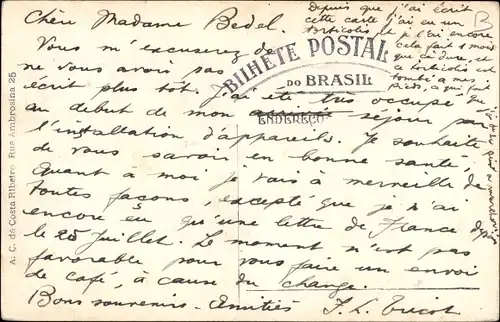 Chère Madame Bedel.
Vous m'excuserez de
ne vous avoir pas
écrit plus tôt. J'ai été très occupé
au debut de mon séjour par
l'installation d'appareils. Je souhaite
de vous savoir en bonne santé.
Quant à moi je vais à merveille de
toutes façons, excepté que je n'ai
encore eu qu'une lettre de France depuis
le 25 Juillet. Le moment n'est pas
favorable pour vous faire un envoi
de café, à cause du change.
Bons souvenirs. Amitiés J. L. Tricot
Depuis que j'ai écrit
cette carte j'ai eu un
torticolis, je l'ai encore
cela fait 1 mois
que ça dure, et
ce torticolis est
tombé à mes
pieds, a qui fait
B
BILHETE POSTAL
DO BRASIL
ENDEREÇO
A. C. da Costa Ribeiro, Rua Ambrosina 25